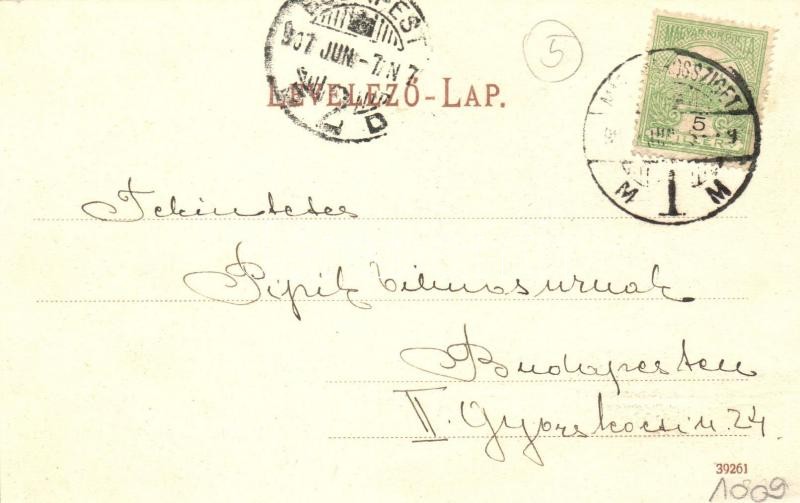 BUDAPEST
907 JUN.-7.N 7
D
5
LEVELEZŐ-LAP.
MAGYAR KIR. POSTA
5
M 1 M
Tekintetes
Pipik Vilmos urnak
Budapesten
II. Gyorskocsi u 24.
39261
1009